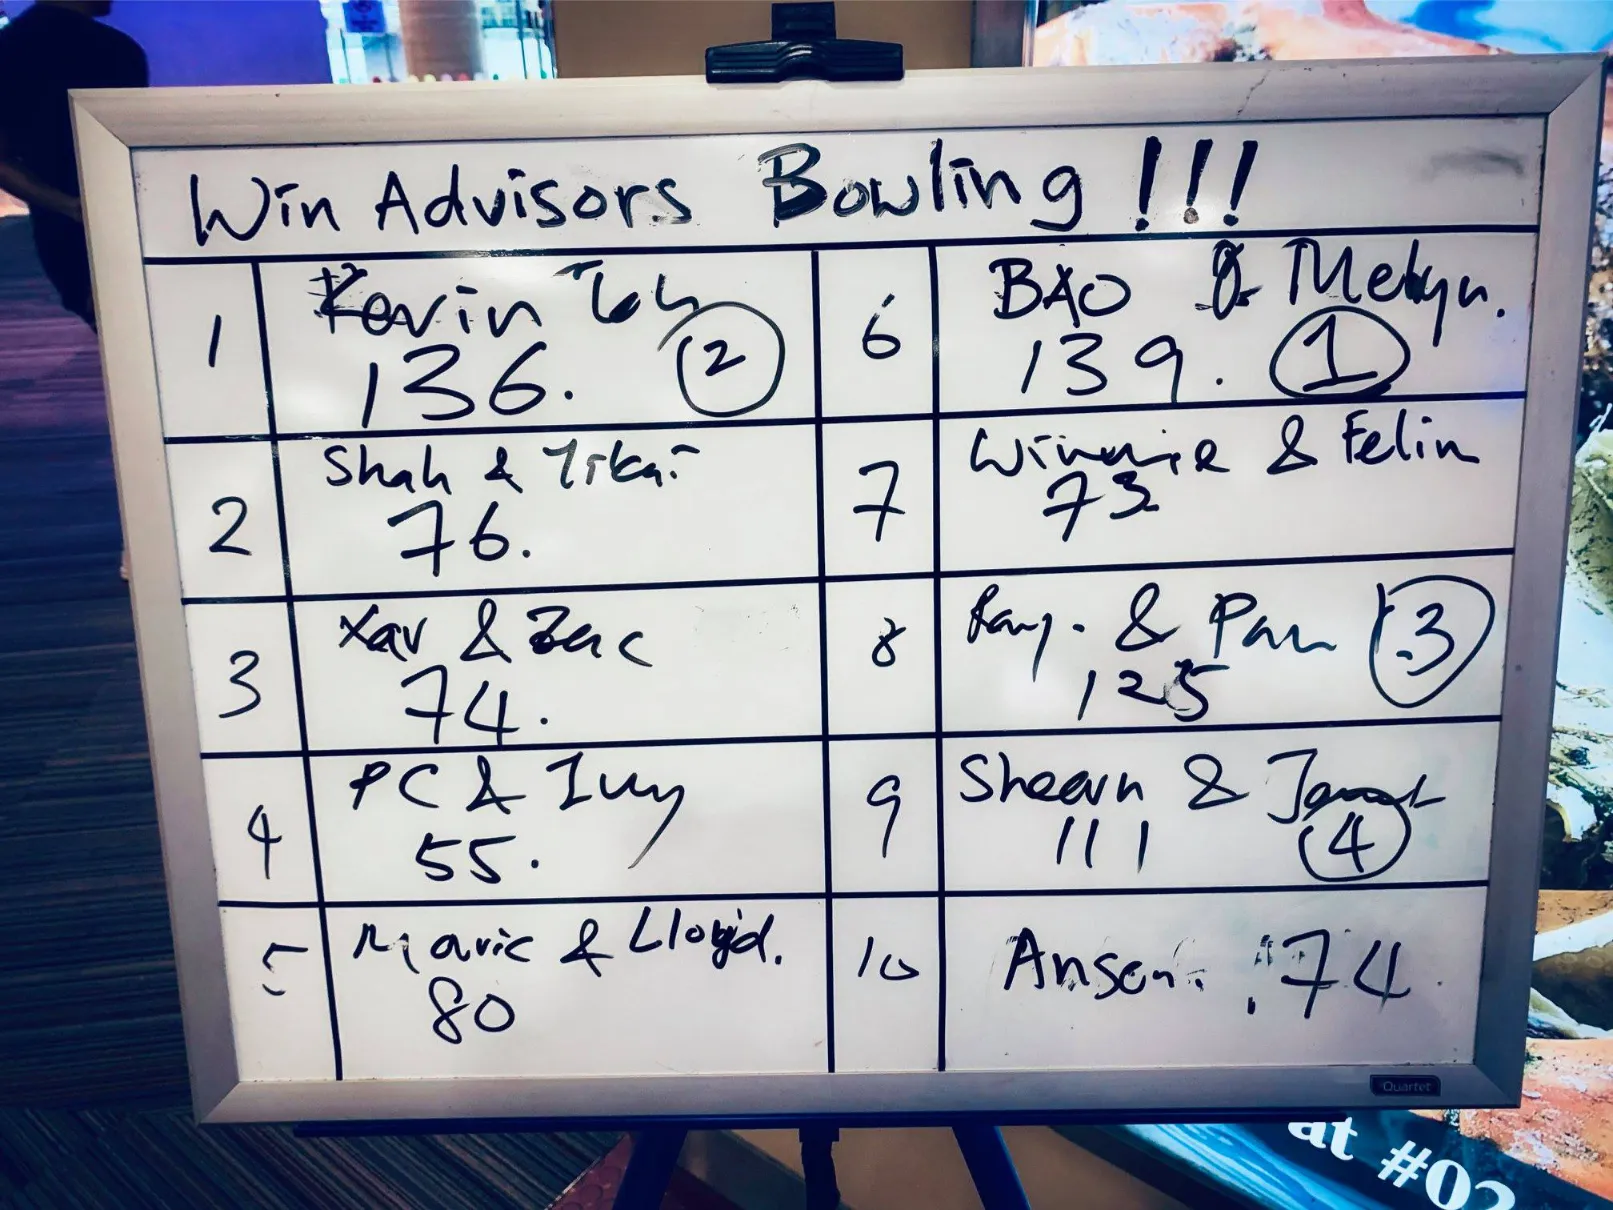 Win Advisors Bowling !!!
1
Kevin Toh
136. 2
2
Shah & Yikai
76.
3
Xav & Zac
74.
4
PC & Ivy
55.
5
Mavic & Lloyd.
80
6
BAO & Melvyn.
139. 1
7
Winnie & Felin
73
8
Ray. & Pam 3
125
9
Shearn & Janet
111 4
10
Anson. 74
Quartet
at #02